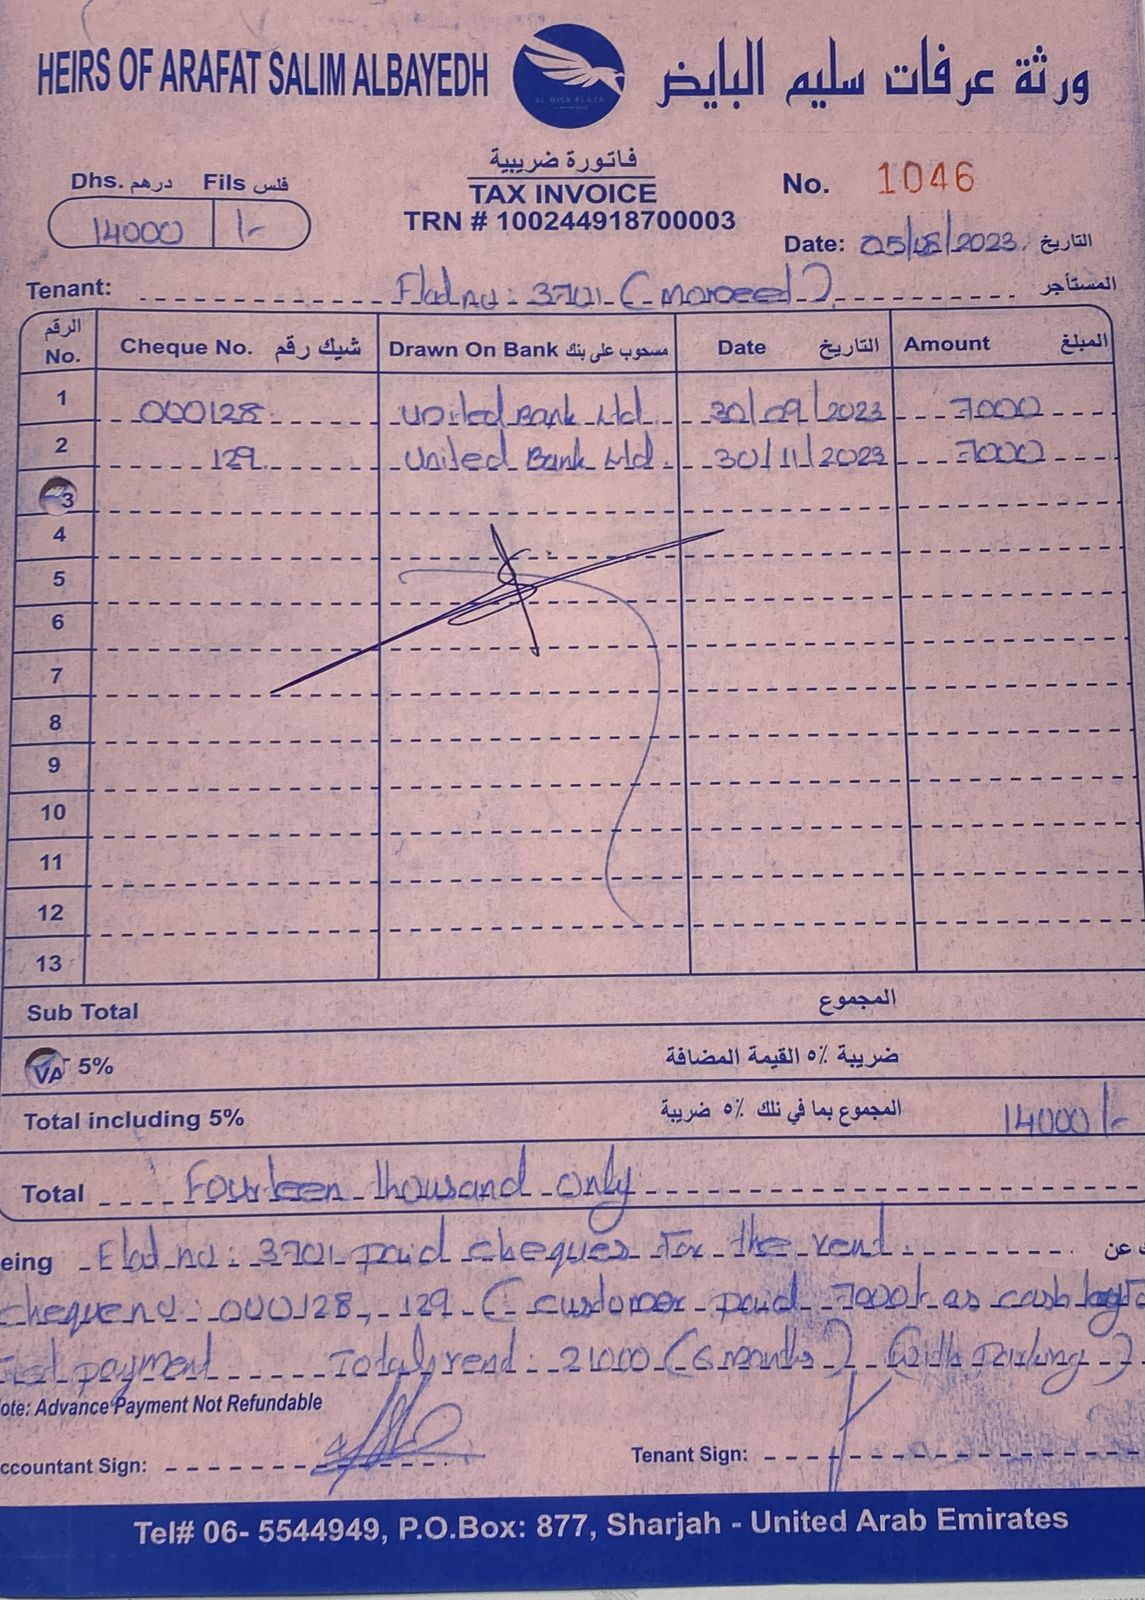 HEIRS OF ARAFAT SALIM ALBAYEDH
ورثة عرفات سليم البايض
AL NISR PLAZA
فاتورة ضريبية
TAX INVOICE
TRN # 100244918700003
Dhs. درهم Fils فلس
14000 /-
No. 1046
Date: 05/08/2023 التاريخ
Tenant: Flat no: 3701 ( ) المستأجر
الرقم No. Cheque No. شيك رقم Drawn On Bank مسحوب على بنك Date التاريخ Amount المبلغ
1 000128 United Bank Ltd 30/09/2023 7000
2 129 United Bank Ltd. 30/11/2023 7000
3
4
5
6
7
8
9
10
11
12
13
Sub Total المجموع
VAT 5% ضريبة ٥٪ القيمة المضافة
Total including 5% المجموع بما في ذلك ٥٪ ضريبة 14000/-
Total Fourteen thousand only
eing Flat no: 3701 paid cheques for the rent عن
cheque no: 000128, 129 ( customer paid 7000/- as cash
payment Total rent: 21000 (6 months) (with Parking)
ote: Advance Payment Not Refundable
ccountant Sign:
Tenant Sign:
Tel# 06- 5544949, P.O.Box: 877, Sharjah - United Arab Emirates